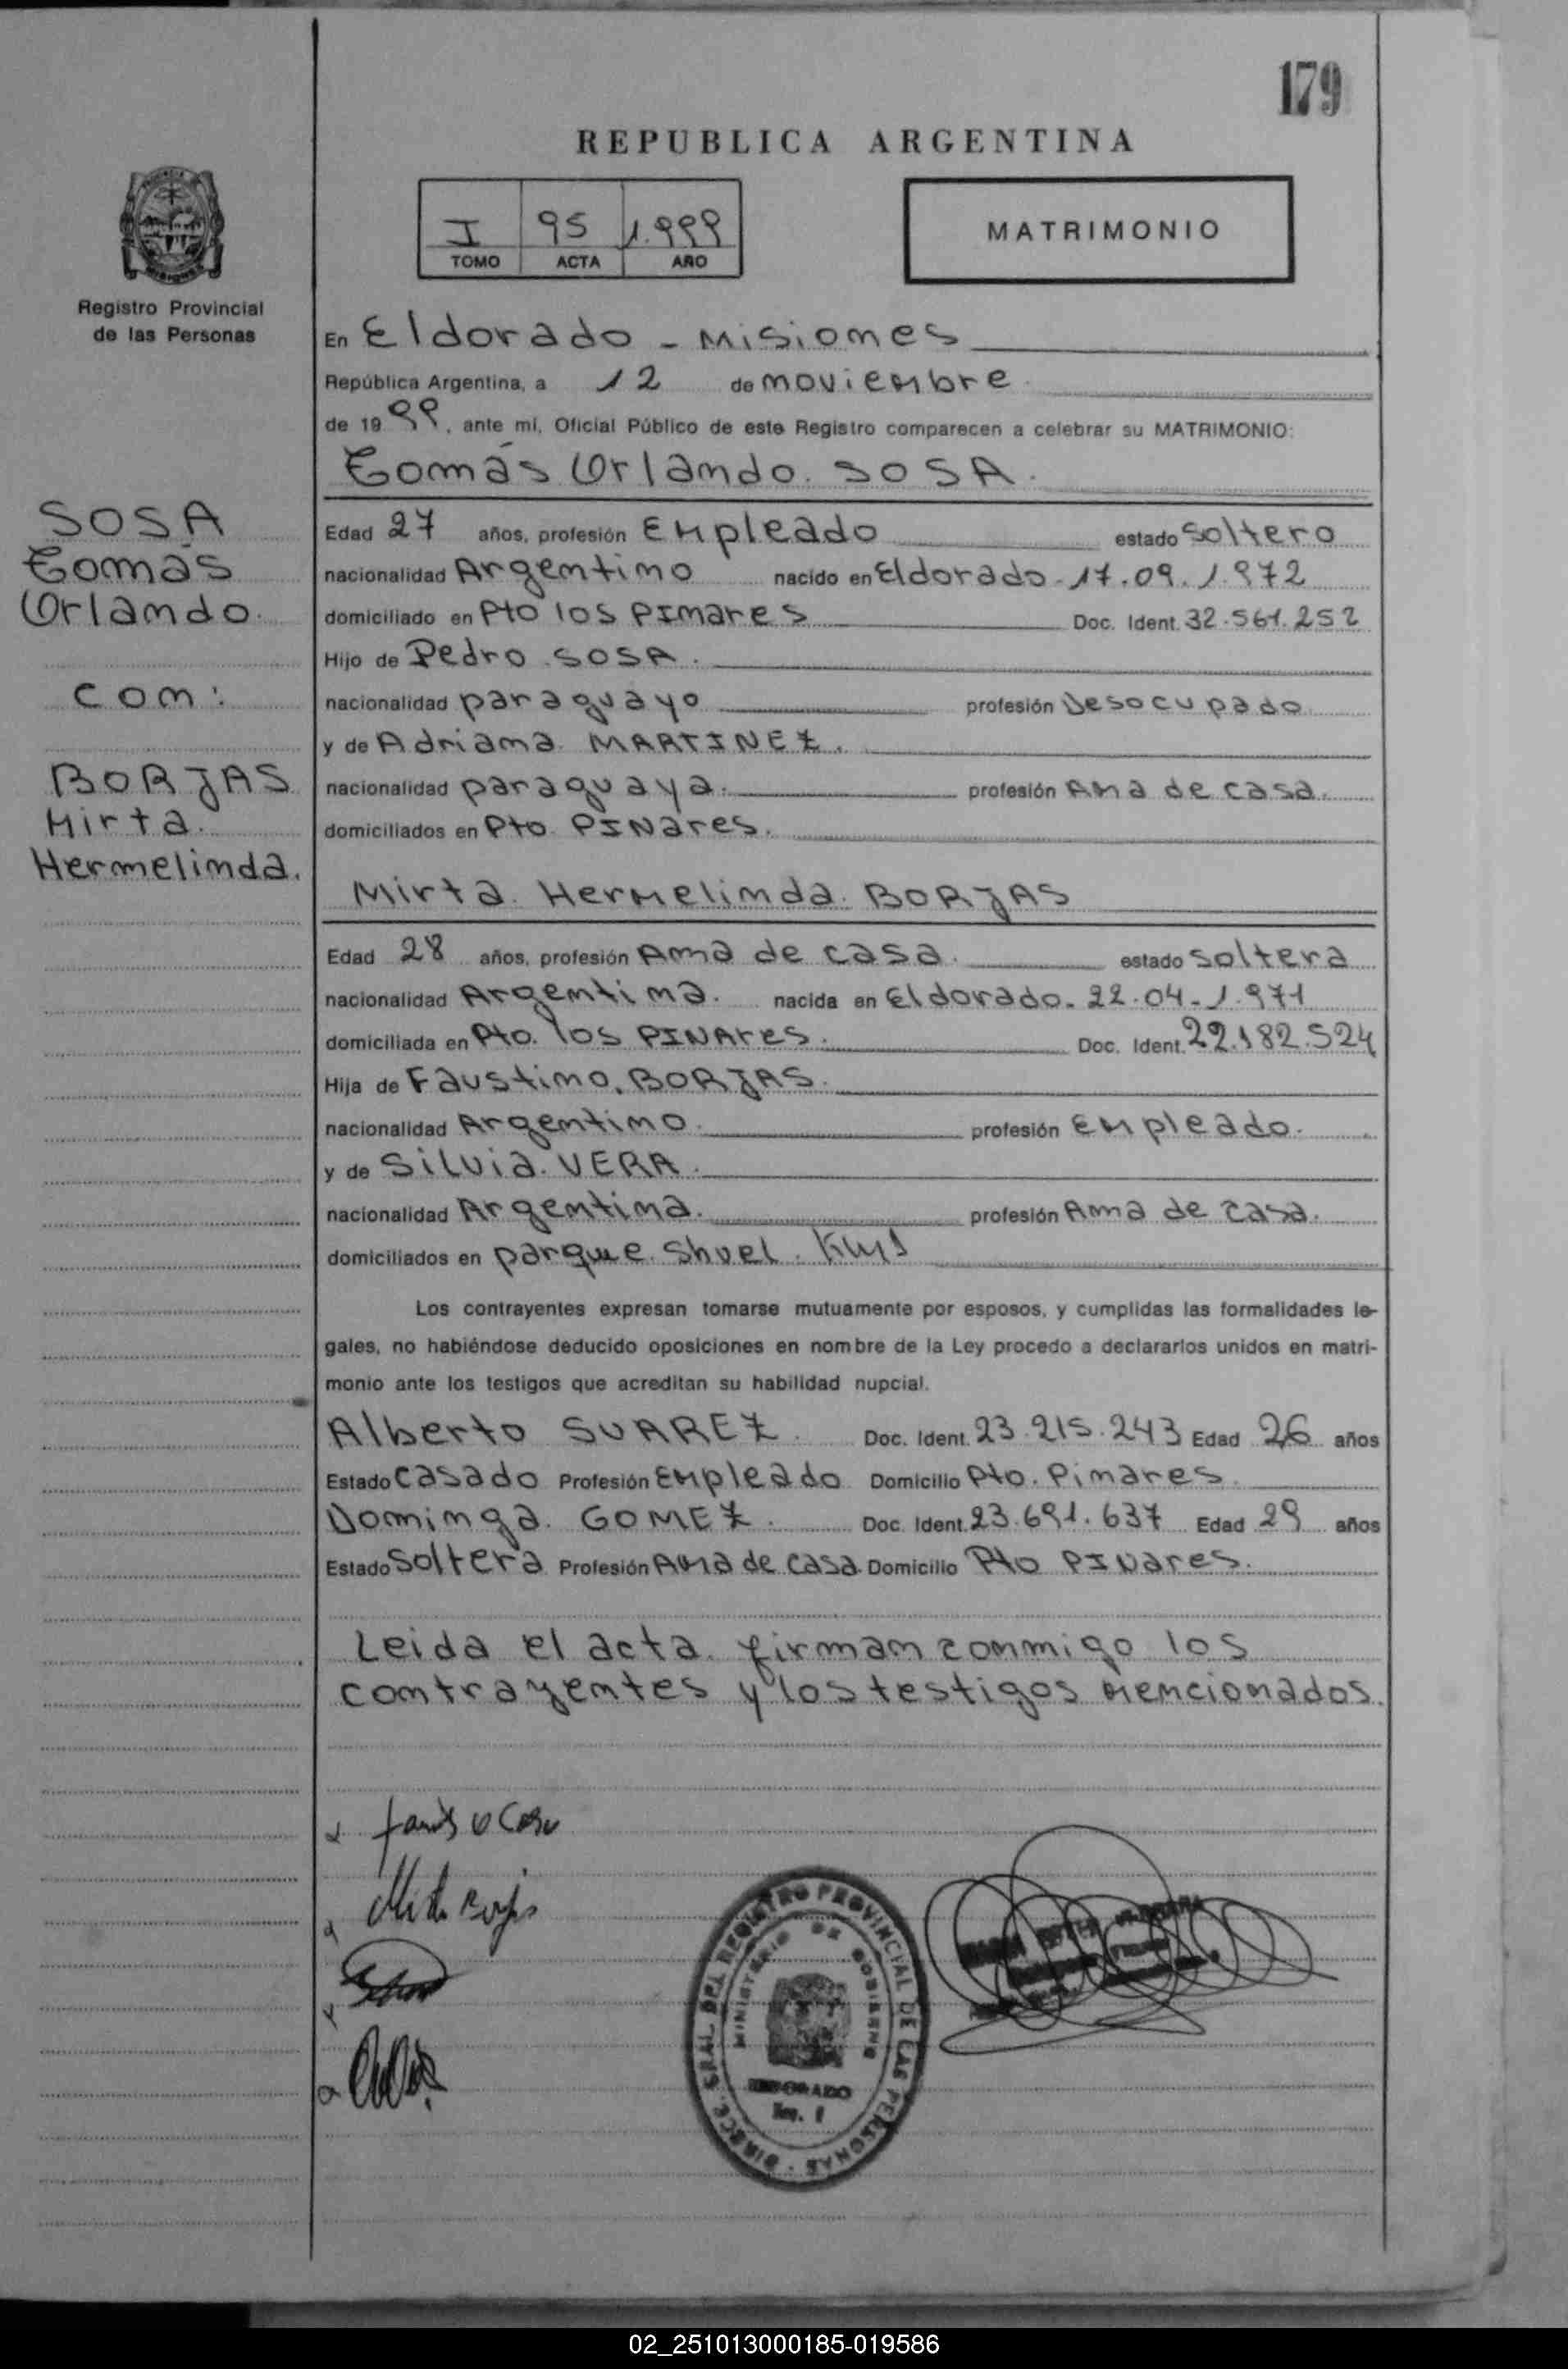 179
REPUBLICA ARGENTINA
I 95 1.999
TOMO ACTA AÑO
MATRIMONIO
Registro Provincial
de las Personas
En Eldorado - Misiones
República Argentina, a 12 de noviembre
de 1999, ante mí, Oficial Público de este Registro comparecen a celebrar su MATRIMONIO:
Tomás Orlando. SOSA.
SOSA
Tomás
Orlando.
con:
BORJAS
Mirta.
Hermelinda.
Edad 27 años, profesión Empleado estado soltero
nacionalidad Argentino nacido en Eldorado-17.09.1.972
domiciliado en Pto los PInares Doc. Ident. 32.561.252
Hijo de Pedro SOSA.
nacionalidad paraguayo profesión Desocupado
y de Adriana MARTINEZ.
nacionalidad paraguaya. profesión Ama de casa.
domiciliados en Pto PINares.
Mirta Hermelinda. BORJAS
Edad 28 años, profesión Ama de casa. estado soltera
nacionalidad Argentina. nacida en Eldorado-22.04-1.971
domiciliada en Pto. los PINAres. Doc. Ident. 22.182.524
Hija de Faustino. BORJAS.
nacionalidad Argentino. profesión Empleado.
y de Silvia. VERA.
nacionalidad Argentina. profesión Ama de casa.
domiciliados en parque Shuel.
Los contrayentes expresan tomarse mutuamente por esposos, y cumplidas las formalidades le-
gales, no habiéndose deducido oposiciones en nombre de la Ley procedo a declararlos unidos en matri-
monio ante los testigos que acreditan su habilidad nupcial.
Alberto SUAREZ. Doc. Ident. 23.215.243 Edad 26 años
Estado casado Profesión Empleado Domicilio Pto. Pinares.
Dominga. GOMEZ. Doc. Ident. 23.691.637 Edad 29 años
Estado soltera Profesión Ama de casa. Domicilio Pto PINares.
Leida el acta firman conmigo los
contrayentes y los testigos mencionados.
DIRECC. GRAL. DEL REGISTRO PROVINCIAL DE LAS PERSONAS
MINISTERIO DE GOBIERNO
ELDORADO
02_251013000185-019586